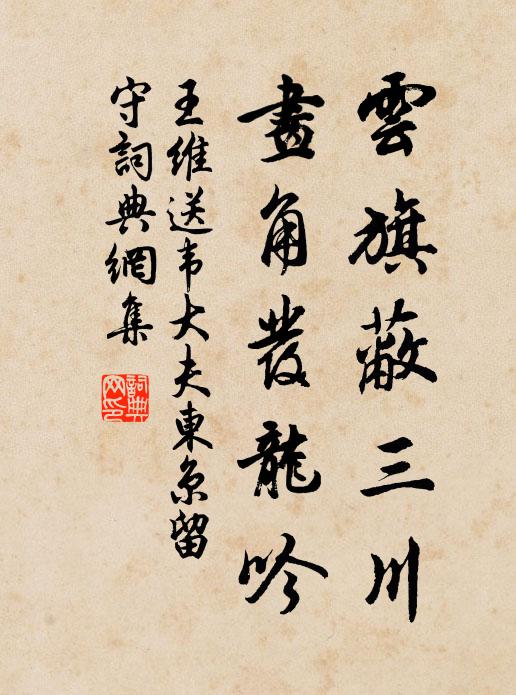 雲旗蔽三川
畫角發龍吟
王維送韦大夫東京留
守詞典網集
詞典
网印